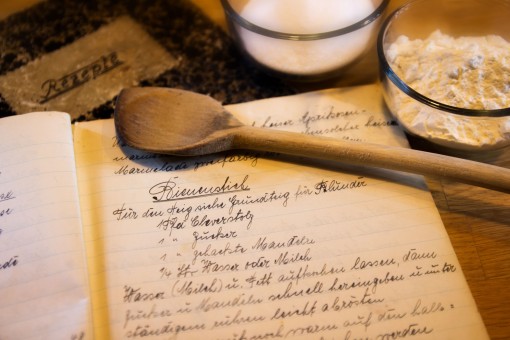 Rezepte
Marmelade
Bienenstich
Für den Teig siehe Grundteig für Plunder
1 Pfd Cleverstolz
1 " Zucker
1 " gehackte Mandeln
1/4 Ltr. Wasser oder Milch
Wasser (Milch) u. Fett aufkochen lassen, dann
Zucker u Mandeln schnell hereingeben u unter
ständigem rühren leicht abrösten
noch warm auf den halb=
werden